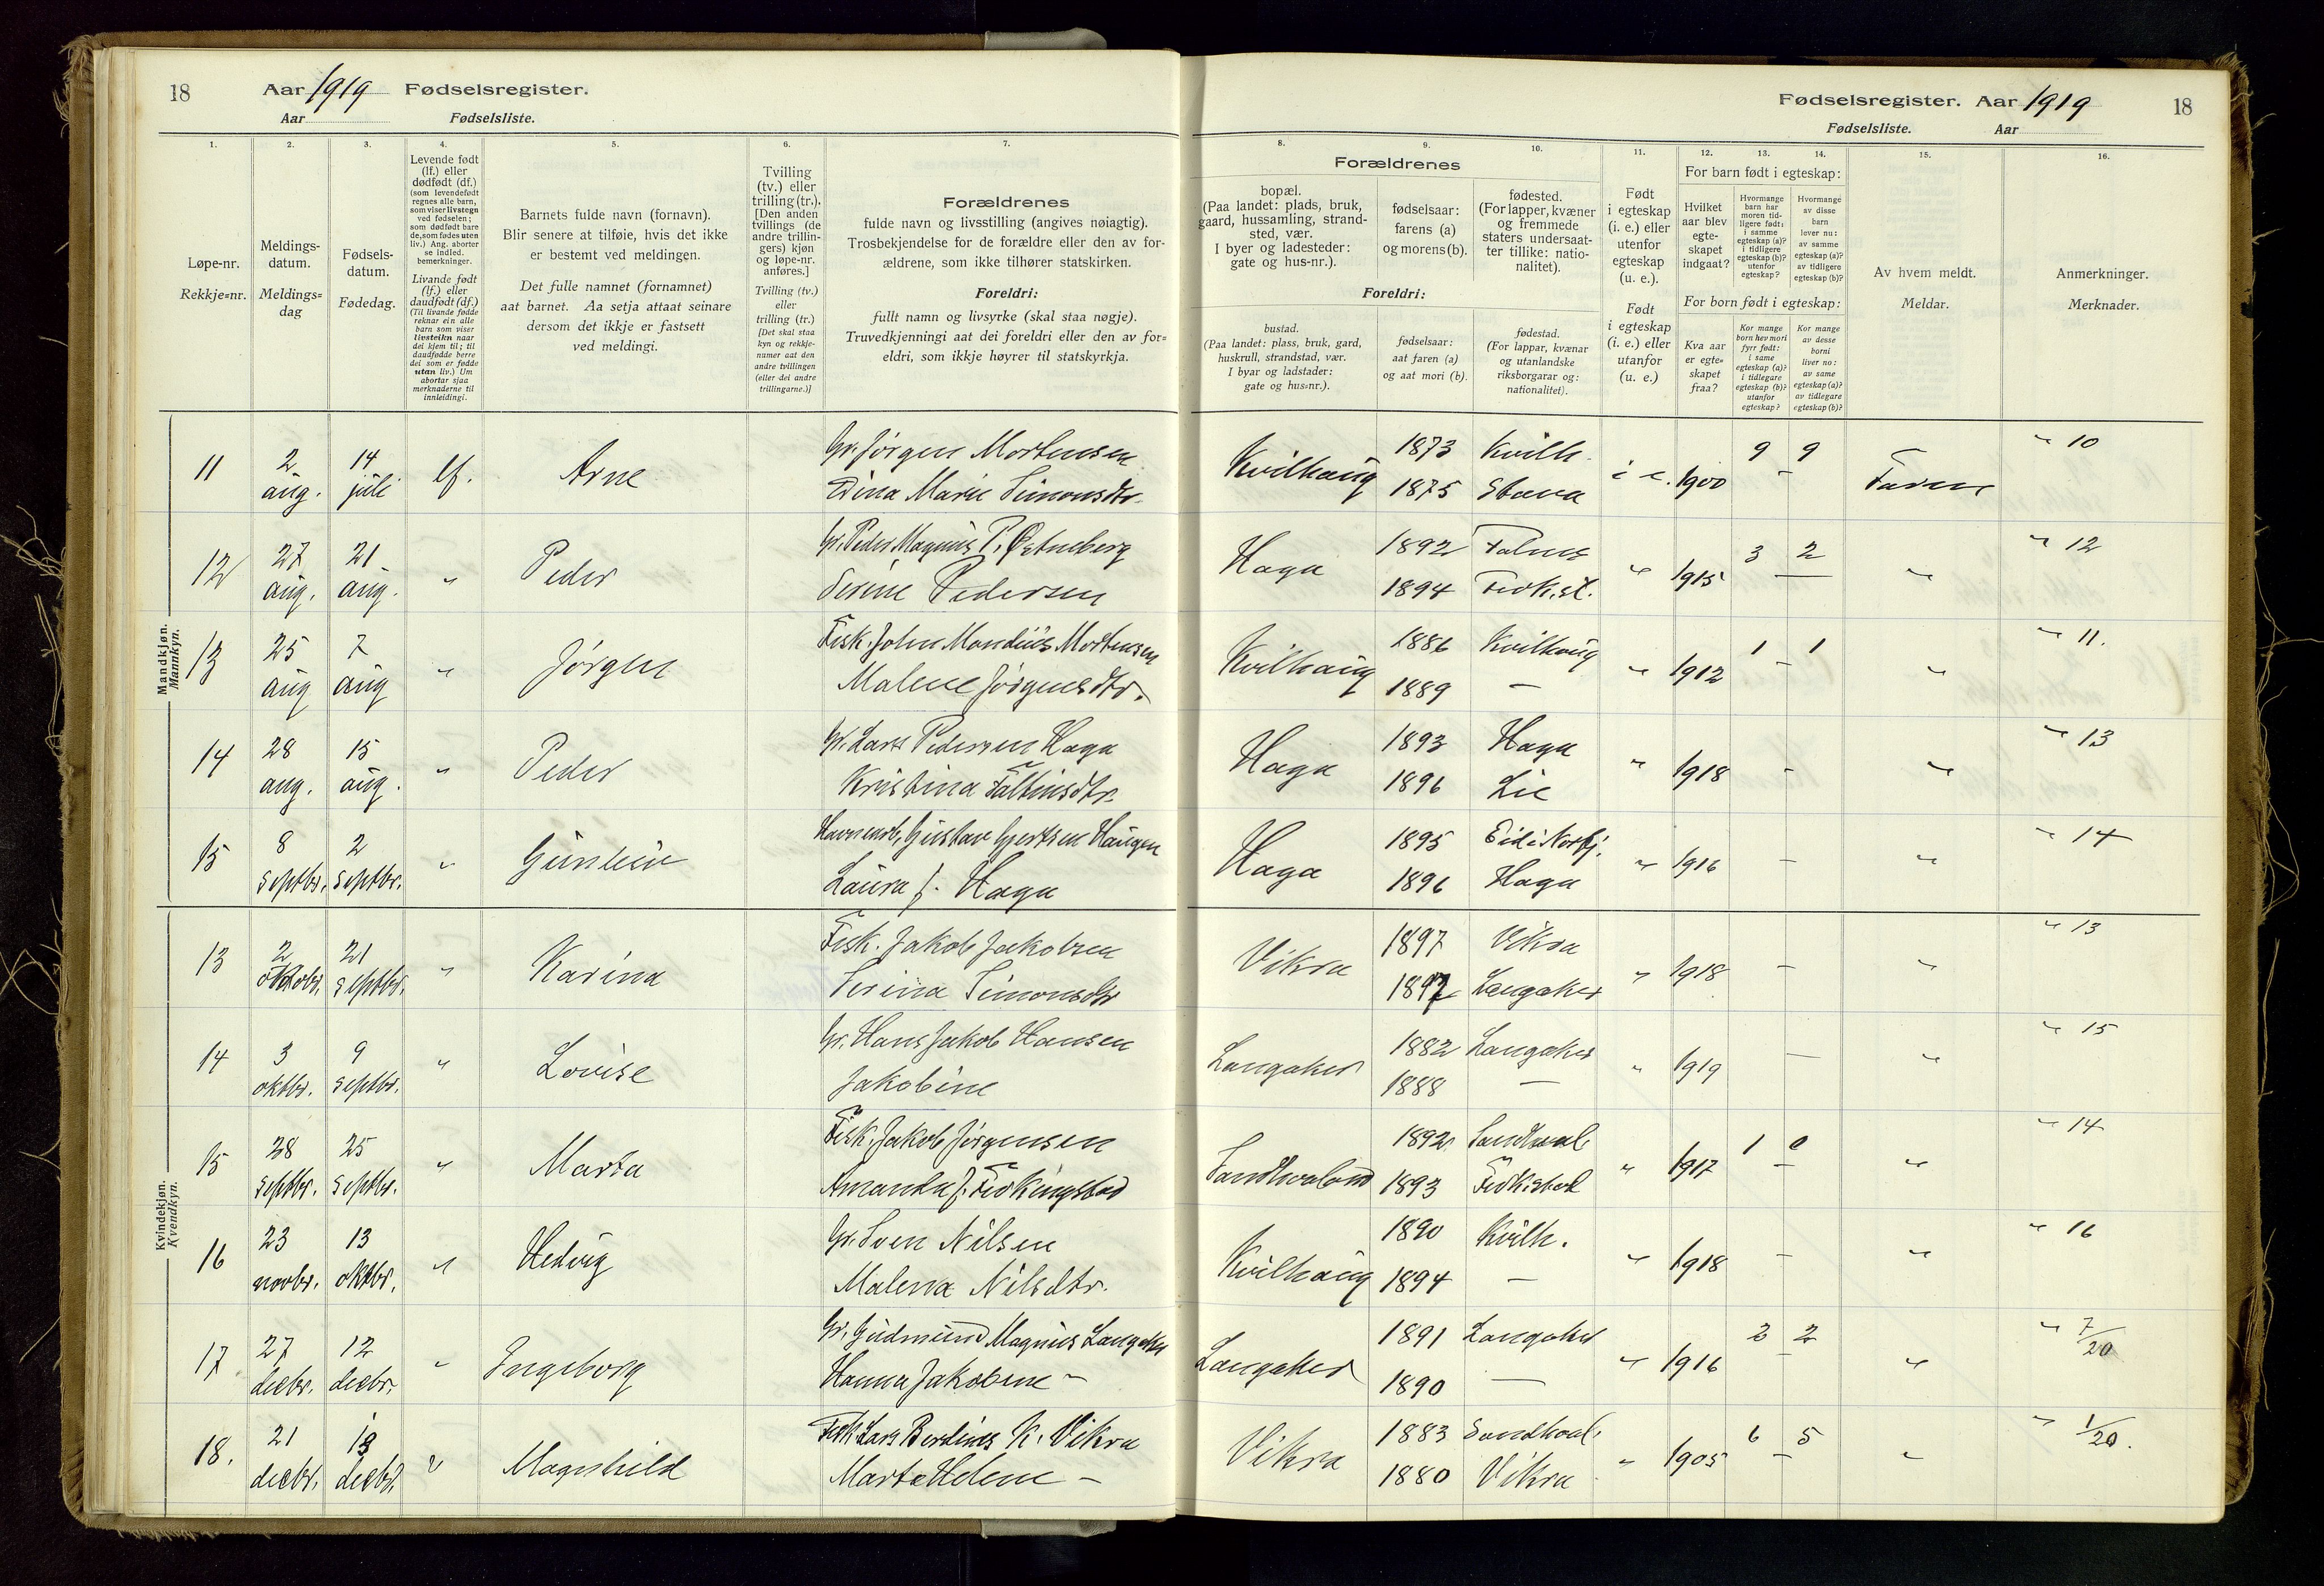 18 Aar 1919 Fødselsregister.
Aar Fødselsliste.
Fødselsregister. Aar 1919 18
Fødselsliste. Aar
1. 2. 3. 4. 5. 6. 7.
Løpe-nr.
Rekkje=nr.
Meldings-
datum.
Meldings=
dag
Fødsels-
datum.
Fødedag.
Levende født
(lf.) eller
dødfødt (df.)
(som levendefødt
regnes alle barn,
som viser livstegn
ved fødselen;
som dødfødt bare
de, som fødes uten
liv.) Ang. aborter
se indled.
bemerkninger.
Livande født
(lf.) eller
daudfødt (df.)
(Til livande fødde
reknar ein alle
barn som viser
livsteikn naar
dei kjem til; til
daudfødde berre
dei som er fødde
utan liv.) Um
abortar sjaa
merknaderne til
innleidingi.
Barnets fulde navn (fornavn).
Blir senere at tilføie, hvis det ikke
er bestemt ved meldingen.
Det fulle namnet (fornamnet)
aat barnet. Aa setja attaat seinare
dersom det ikkje er fastsett
ved meldingi.
Tvilling
(tv.) eller
trilling (tr.).
[Den anden
tvillings (de
andre trillin-
gers) kjøn
og løpe-nr.
anføres.]
Tvilling (tv.)
eller
trilling (tr.)
[Det skal staa
kyn og rekkje-
numer aat den
andre tvillingen
(eller dei andre
trillingarne.)]
Forældrenes
fulde navn og livsstilling (angives nøiagtig).
Trosbekjendelse for de forældre eller den av for-
ældrene, som ikke tilhører statskirken.
Foreldri:
fullt namn og livsyrke (skal staa nøgje).
Truvedkjenningi aat dei foreldri eller den av for=
eldri, som ikkje høyrer til statskyrkja.
8. 9. 10. 11. 12. 13. 14. 15. 16.
Forældrenes
bopæl.
(Paa landet: plads, bruk,
gaard, hussamling, strand-
sted, vær.
I byer og ladesteder:
gate og hus-nr.).
fødselsaar:
farens (a)
og morens (b).
fødested.
(For lapper, kvæner
og fremmede
staters undersaat-
ter tillike: natio-
nalitet).
Foreldri:
bustad.
(Paa landet: plass, bruk, gard,
huskrull, strandstad, vær.
I byar og ladstader:
gate og hus=nr.).
fødselsaar:
aat faren (a)
og aat mori (b).
fødestad.
(For lappar, kvænar
og utanlandske
riksborgarar og:
nationalitet).
Født
i egteskap
(i. e.) eller
utenfor
egteskap
(u. e.).
Født
i egteskap
(i. e.) eller
utanfor
(u. e.)
For barn født i egteskap:
Hvilket
aar blev
egte-
skapet
indgaat?
Hvormange
barn har
moren tid-
ligere født:
i samme
egteskap (a)?
i tidligere
egteskap (b)?
utenfor
egteskap?
Hvormange
av disse
barn
lever nu:
av samme
egteskap (a)?
av tidligere
egteskap (b)?
For born født i egteskap:
Kva aar
er egte=
skapet
fraa?
Kor mange
born hev mori
fyrr født:
i same
egteskap (a)?
i tidlegare
egteskap (b)?
utanfor
egteskap?
Kor mange
av desse
borni
liver no:
av same
egteskap (a)?
av tidlegare
egteskap (b)?
Av hvem meldt.
Meldar.
Anmerkninger.
Merknader.
Mandkjøn.
Mannkyn.
11 2 aug. 14 juli lf. Arne Gr. Jørgen Mortensen Kvilhaug 1873 Kvilh. i e. 1900 9 9 Faren " 10
Dina Marie Simonsdtr. 1875 Stava -
12 27 aug. 21 aug. " Peder Gr. Peder Magnus P. Østneberg Haga 1892 Falnes " 1915 3 2 " " 12
Serine Pedersen 1894 Ferk.st. —
13 25 aug 7 aug " Jørgen Fisk. John Mandius Mortensen Kvilhaug 1886 Kvilhaug " 1912 1 1 " " 11.
Malene Jørgensdtr. 1889 —
14 28 aug. 15 aug. " Peder Gr. Lars Pedersen Haga Haga 1893 Haga " 1918 - " " 13
Kristina Faltinsdtr. 1896 Lie
15 8 septbr. 2 septbr. " Gunleiv Havnearb. Gustav Gjertsen Haugen Haga 1895 Eide i " 1916 - " " 14
Laura f. Haga 1896 Haga
Kvindekjøn.
Kvendkyn.
13 2 oktobr. 21 septbr. " Karina Fisk. Jakob Jakobsen Vikra 1897 Vikra " 1918 - " " 13
Serina Simonsdtr 1897 Langaker
14 3 oktbr. 9 septbr. " Lovise Gr. Hans Jakob Hansen Langaker 1882 Langaker " 1919 — " " 15
Jakobine 1888 —
15 28 septbr. 25 septbr. " Marta Fisk. Jakob Jørgensen Sandhvaland 1892 Sandhval. " 1917 1 0 " " 14
Amanda f. Ferkingstad 1893 Ferkistad
16 23 novbr. 13 oktbr. " Hedvig Gr. Sven Nilsen Kvilhaug 1890 Kvilh. " 1918 - " " 16
Malena Nilsdtr. 1894 —
17 27 decbr. 12 decbr. " Ingeborg Gr. Gudmund Magnus Langaker Langaker 1891 Langaker " 1916 2 2 " " 7/20
Hanna Jakobine — 1890 —
18. 21 decbr. 13 decbr. " Magnhild Fisk. Lars Berdines K. Vikra Vikra 1883 Sandhval. " 1905 6 5 " " 1/20.
Marta Helene — 1880 Vikra